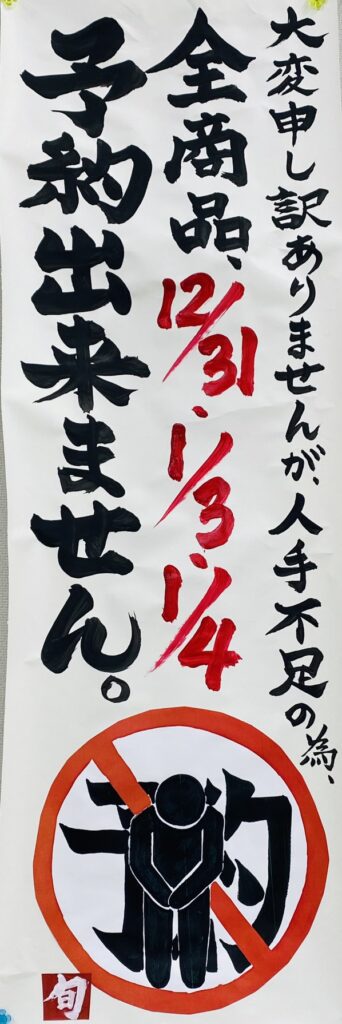 大変申し訳ありませんが、人手不足の為、
全商品、12/31、1/3、1/4
予約出来ません。
予約
旬